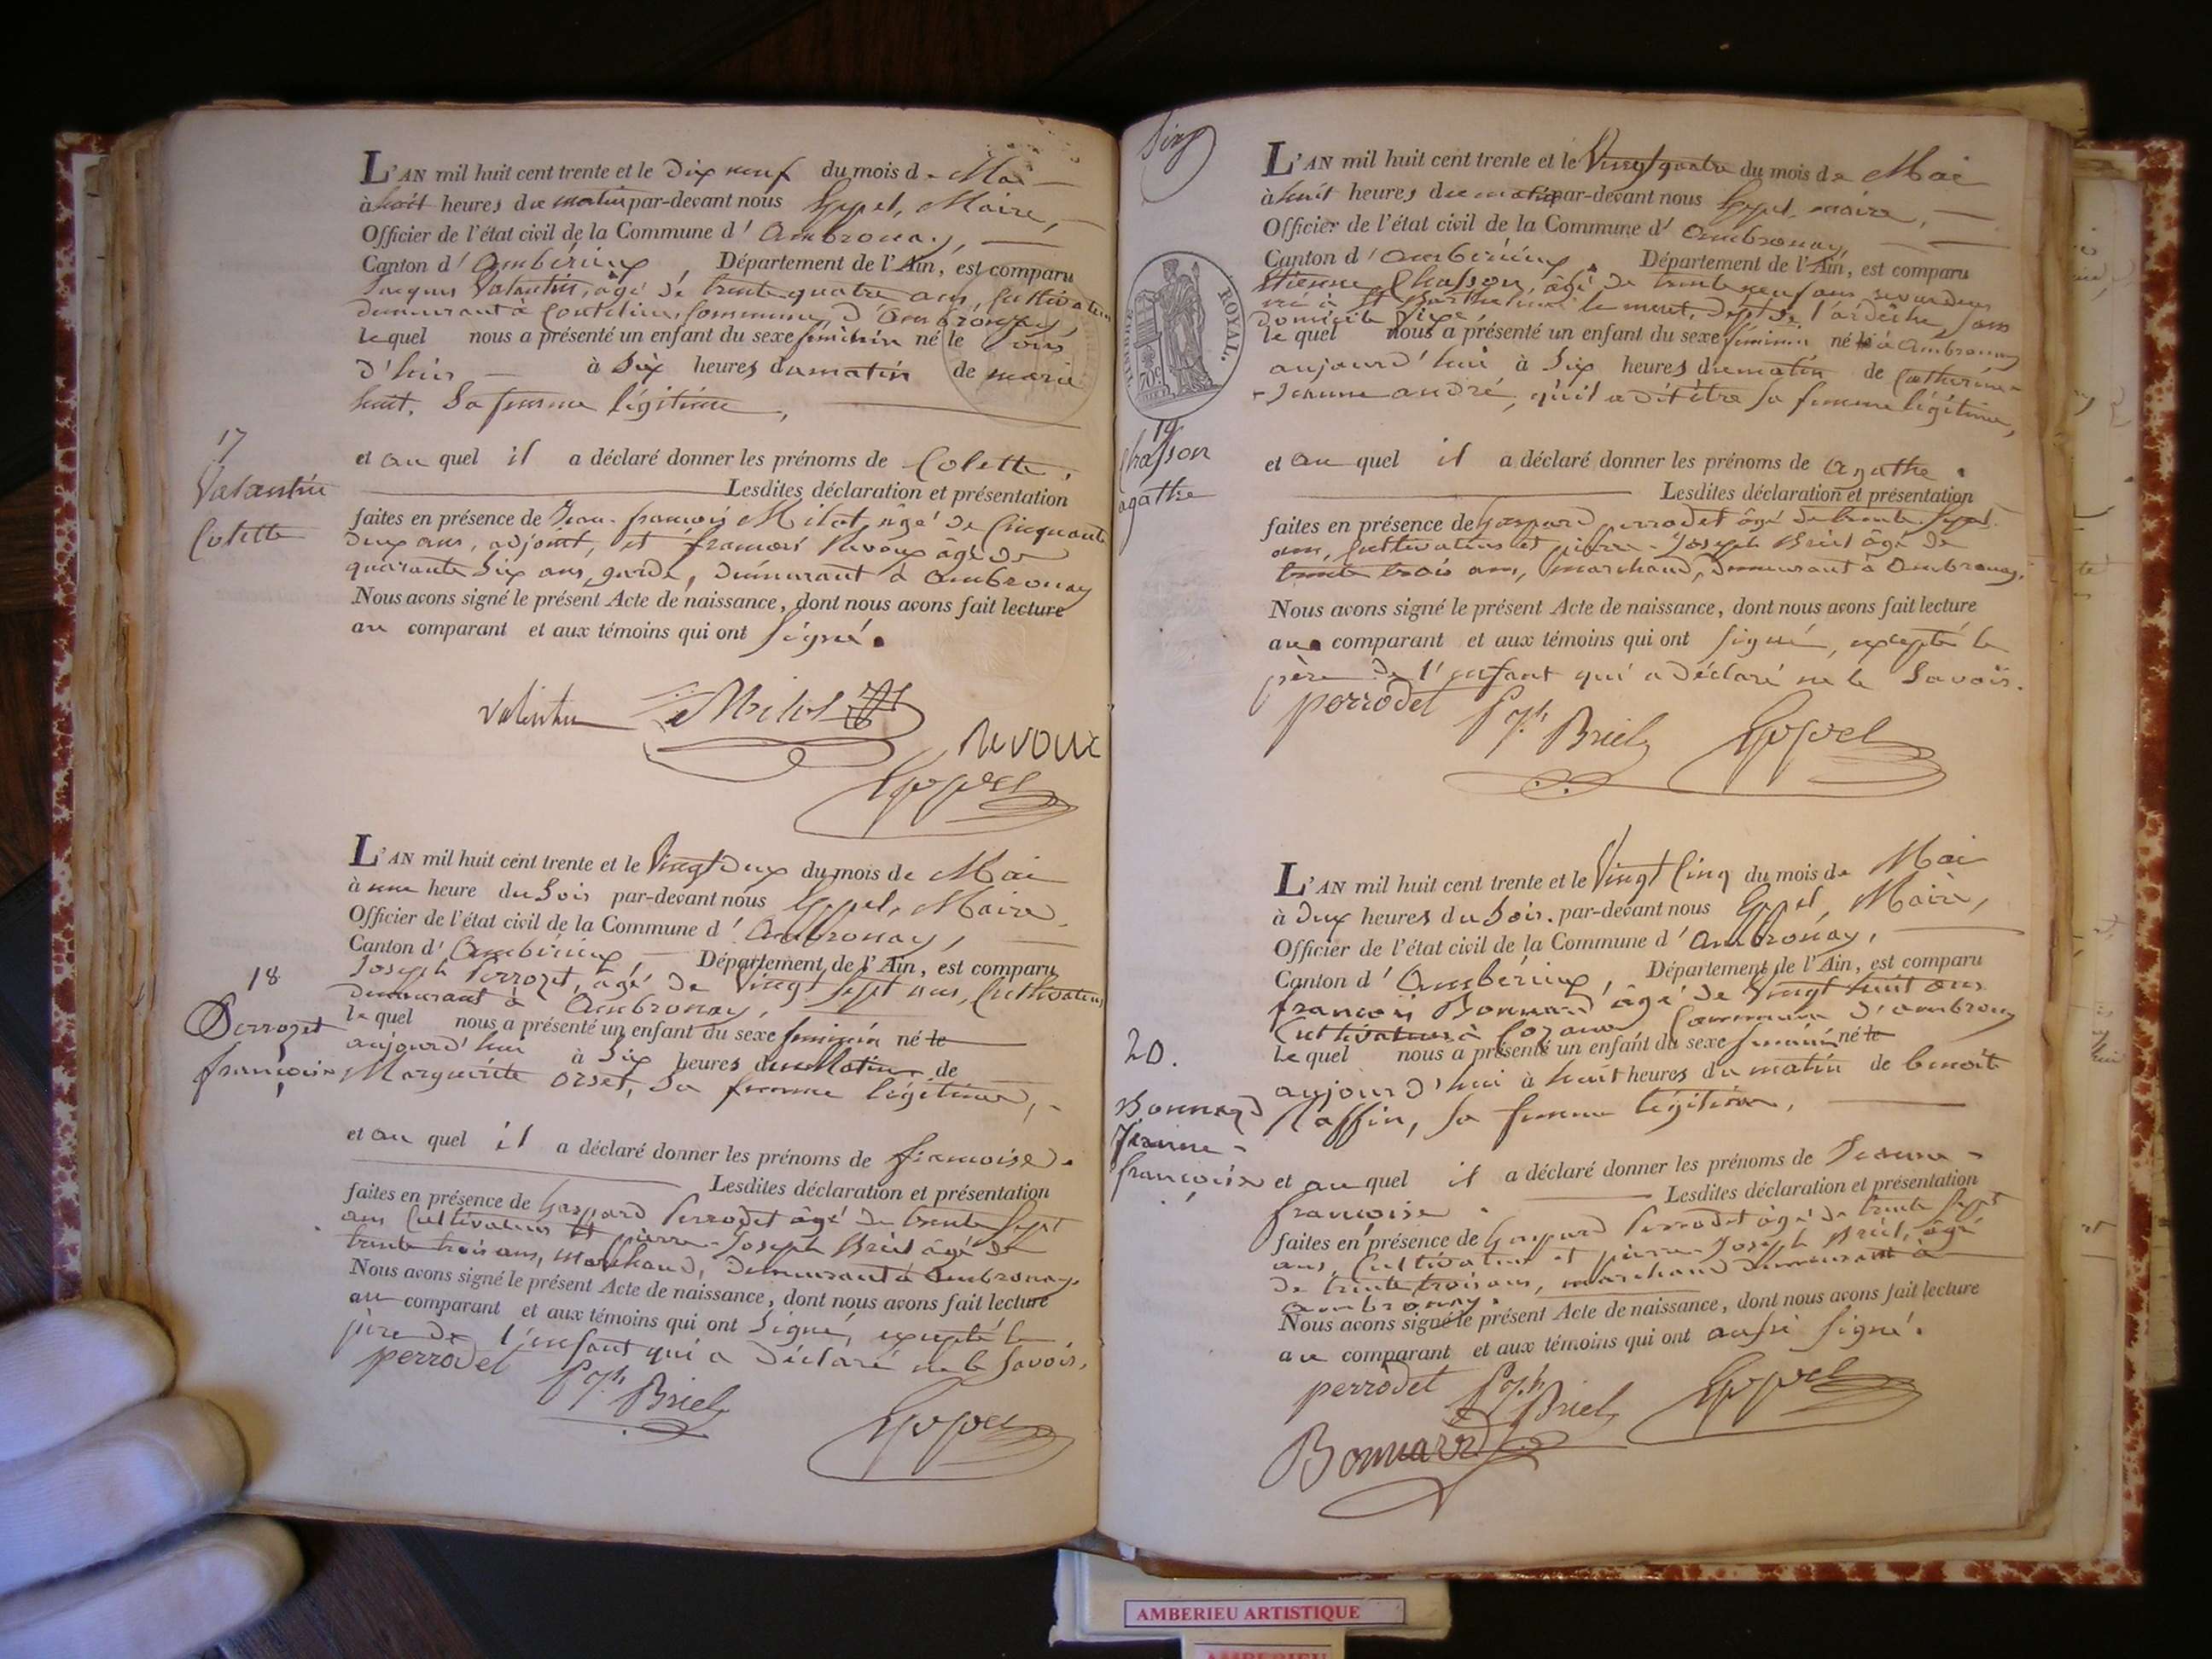 L'AN mil huit cent trente et le Dix neuf du mois de Mai
à huit heures du matin par-devant nous Maire,
Officier de l'état civil de la Commune d'Ambronay,
Canton d'Ambérieux, Département de l'Ain, est comparu
Jacques Valentin, âgé de trente quatre ans, Cultivateur
demeurant à Commune d'Ambronay,
lequel nous a présenté un enfant du sexe féminin né le jour
d'hier à Six heures du matin de marie
huit, Sa femme légitime,
17
Valantin
Colette
et au quel il a déclaré donner les prénoms de Colette,
Lesdites déclaration et présentation
faites en présence de Jean-françois Milot, âgé de Cinquante
deux ans, adjoint, et françois Revoux âgé de
quarante Six ans, garde, demeurant à Ambronay
Nous avons signé le présent Acte de naissance, dont nous avons fait lecture
au comparant et aux témoins qui ont Signé.
valentin Milot
Revoux
L'AN mil huit cent trente et le Vingt Deux du mois de Mai
à une heure du Soir par-devant nous Maire
Officier de l'état civil de la Commune d'Ambronay,
Canton d'Ambérieux, Département de l'Ain, est comparu
Joseph Perrozet, âgé de Vingt Sept ans, Cultivateur
demeurant à Ambronay,
lequel nous a présenté un enfant du sexe féminin né le
aujourd'hui à Six heures du Matin de
Marguerite Orset, Sa femme légitime,
18
Perrozet
françoise
et au quel il a déclaré donner les prénoms de françoise.
Lesdites déclaration et présentation
faites en présence de Gaspard Perrodet âgé de trente Sept
ans Cultivateur et pierre-Joseph Briel âgé de
trente trois ans, Marchand, demeurant à Ambronay,
Nous avons signé le présent Acte de naissance, dont nous avons fait lecture
au comparant et aux témoins qui ont Signé, excepté le
père de l'enfant qui a Déclaré ne le Savoir.
perrodet Jph Briel
TIMBRE ROYAL.
70c
L'AN mil huit cent trente et le Vingt quatre du mois de Mai
à huit heures du matin par-devant nous maire,
Officier de l'état civil de la Commune d'Ambronay,
Canton d'Ambérieux, Département de l'Ain, est comparu
Etienne Chasson, âgé de trente neuf ans
né à St Barthélemi le Dept de l'ardèche, Sans
domicile fixe,
lequel nous a présenté un enfant du sexe féminin né à Ambronay
aujourd'hui à Six heures du matin de Catherine-
Jeanne andré, qu'il a dit être Sa femme légitime,
19
Chasson
agathe
et au quel il a déclaré donner les prénoms de agathe.
Lesdites déclaration et présentation
faites en présence de Gaspard perrodet âgé de trente Sept
ans, Cultivateur et pierre-Joseph Briel âgé de
trente trois ans, Marchand, demeurant à Ambronay.
Nous avons signé le présent Acte de naissance, dont nous avons fait lecture
au comparant et aux témoins qui ont Signé, excepté le
père de l'enfant qui a Déclaré ne le Savoir.
perrodet Jph Briel
L'AN mil huit cent trente et le Vingt Cinq du mois de Mai
à Deux heures du Soir. par-devant nous Maire,
Officier de l'état civil de la Commune d'Ambronay,
Canton d'Ambérieux, Département de l'Ain, est comparu
françois Bonnard âgé de Vingt huit ans
Cultivateur à Commune d'ambronay
lequel nous a présenté un enfant du sexe féminin né le
aujourd'hui à huit heures du matin de benoîte
Raffin, Sa femme légitime,
20.
Bonnard
Jeanne-
françoise
et au quel il a déclaré donner les prénoms de Jeanne-
françoise.
Lesdites déclaration et présentation
faites en présence de Gaspard Perrodet âgé de trente Sept
ans, Cultivateur et pierre-Joseph Briel, âgé
de trente trois ans, marchand demeurant à
ambronay.
Nous avons signé le présent Acte de naissance, dont nous avons fait lecture
au comparant et aux témoins qui ont aussi Signé.
perrodet Jph Briel
Bonnard
AMBERIEU ARTISTIQUE
AMBERIEU